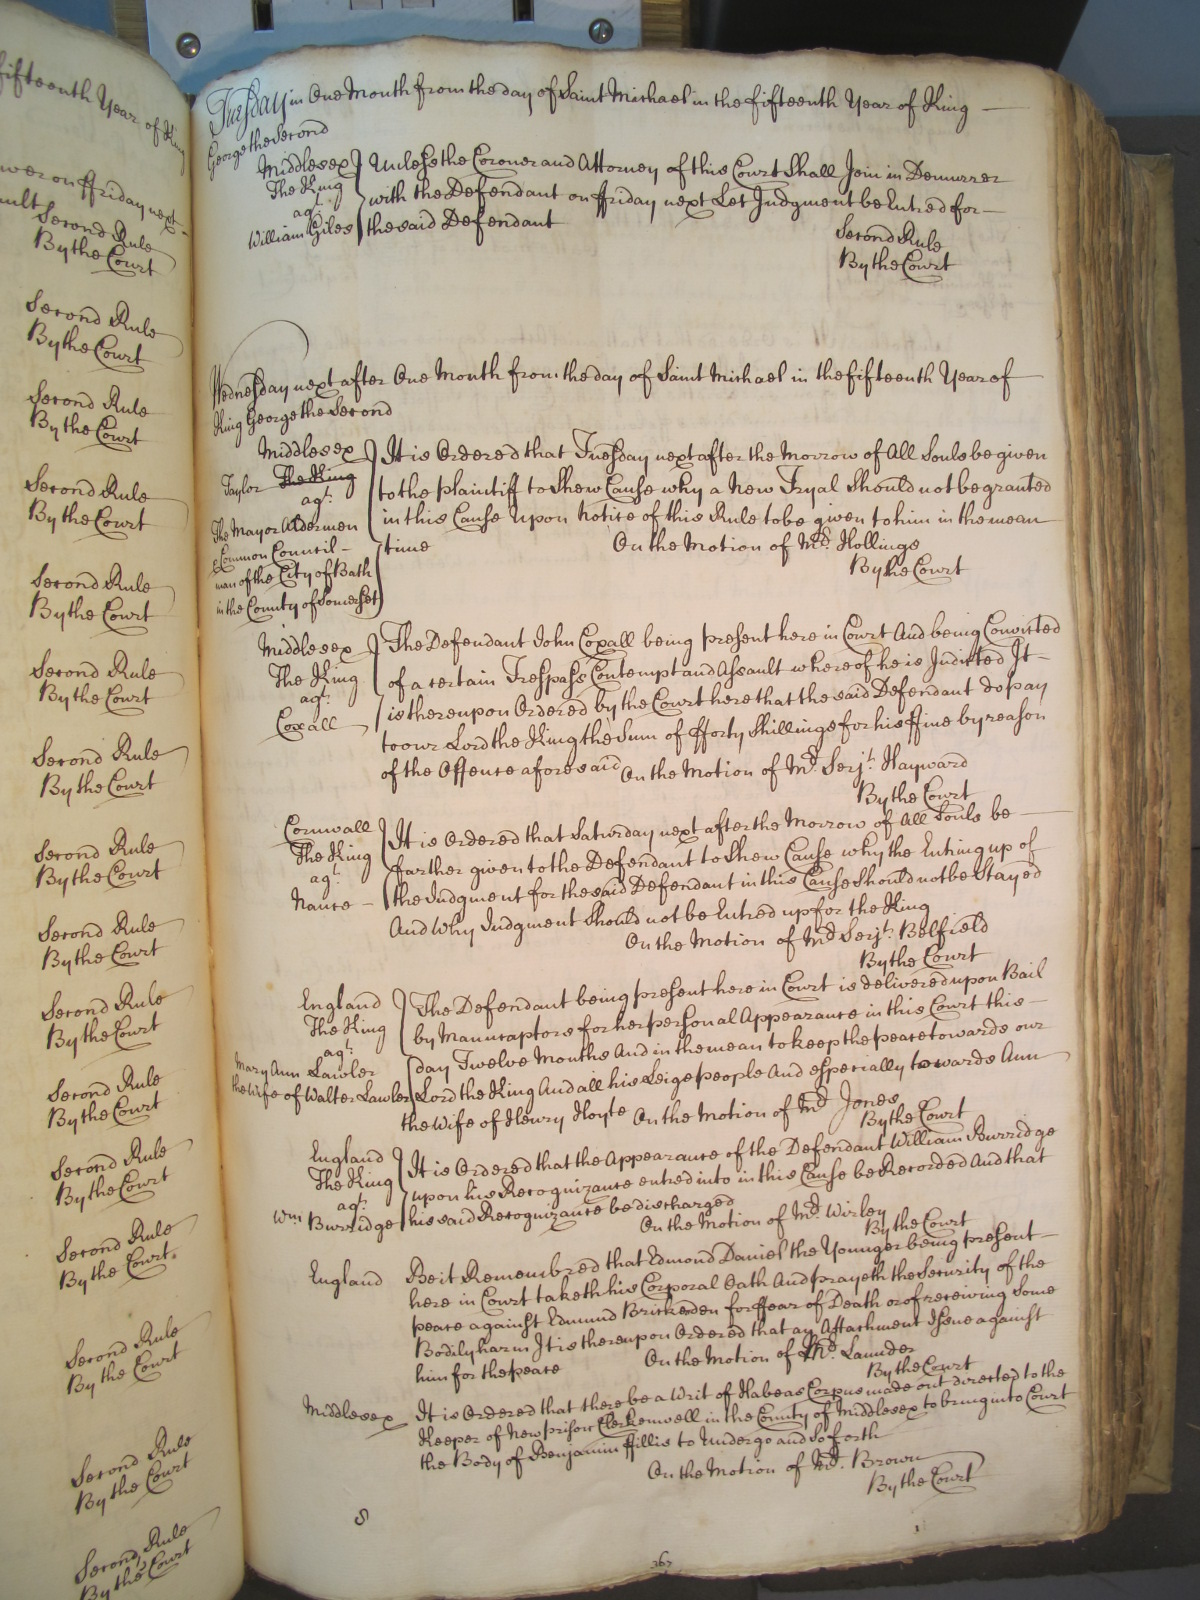 fifteenth Year of King
wer on ffriday next
ault
Second Rule
By the Court
Second Rule
By the Court
Second Rule
By the Court
Second Rule
By the Court
Second Rule
By the Court
Second Rule
By the Court
Second Rule
By the Court
Second Rule
By the Court
Second Rule
By the Court
Second Rule
By the Court
Second Rule
By the Court
Second Rule
By the Court
Second Rule
By the Court.
Second Rule
By the Court
Second Rule
By the Court
Second Rule
By the Court
Tuesday in One Month from the day of Saint Michael in the fifteenth Year of King
George the Second
Middlesex Unless the Coroner and Attorney of this Court Shall Join in Demurrer
The King with the Defendant on ffriday next Let Judgment be Entred for
agt.
William Giles the said Defendant
Second Rule
By the Court
Wednesday next after One Month from the day of Saint Michael in the fifteenth Year of
King George the Second
Middlesex It is Ordered that Tuesday next after the Morrow of All Souls be given
Taylor The King to the plaintiff to Shew Cause why a New Tryal Should not be granted
agt. in this Cause Upon Notice of this Rule to be given to him in the mean
The Mayor Aldermen time On the Motion of Mr. Hollings
Common Council By the Court
men of the City of Bath
in the County of Somerset
Middlesex The Defendant John Coxall being present here in Court And being Convicted
The King of a certain Trespass Contempt and Assault whereof he is Indicted It
agt. is thereupon Ordered by the Court here that the said Defendant do pay
Coxall to our Lord the King the Sum of fforty Shillings for his ffine by reason
of the Offence aforesaid On the Motion of Mr. Serjt. Hayward
By the Court
Cornwall It is Ordered that Saturday next after the Morrow of All Souls be
The King farther given to the Defendant to Shew Cause why the Entring up of
agt. the Judgment for the said Defendant in this Cause Should not be Stayed
Nance And Why Judgment Should not be Entred up for the King
On the Motion of Mr. Serjt. Belfield
By the Court
England The Defendant being present here in Court is delivered upon Bail
The King by Manucaptors for her personal Appearance in this Court this
agt. day Twelve Months And in the mean to keep the peace towards our
Mary Ann Lawler
the Wife of Walter Lawler Lord the King And all his Leige people And especially towards Ann
the Wife of Henry Hoyle On the Motion of Mr. Jones
By the Court
England It is Ordered that the Appearance of the Defendant William Burridge
The King upon his Recognizance entred into in this Cause be Recorded And that
agt.
Wm Burridge his said Recognizance be discharged
On the Motion of Mr. Wirley
By the Court
England Be it Remembred that Edmond Daniel the Younger being present
here in Court taketh his Corporal Oath And prayeth the Security of the
peace against Edmund Brickenden for ffear of Death or of receiving Some
Bodily harm It is thereupon Ordered that an Attachment Issue against
him for the peace On the Motion of Mr. Launder
By the Court
Middlesex It is Ordered that there be a Writ of Habeas Corpus made out directed to the
Keeper of New prison Clerkenwell in the County of Middlesex to bring into Court
the Body of Benjamin ffillis to Undergo and So forth
On the Motion of Mr. Brown
By the Court
367